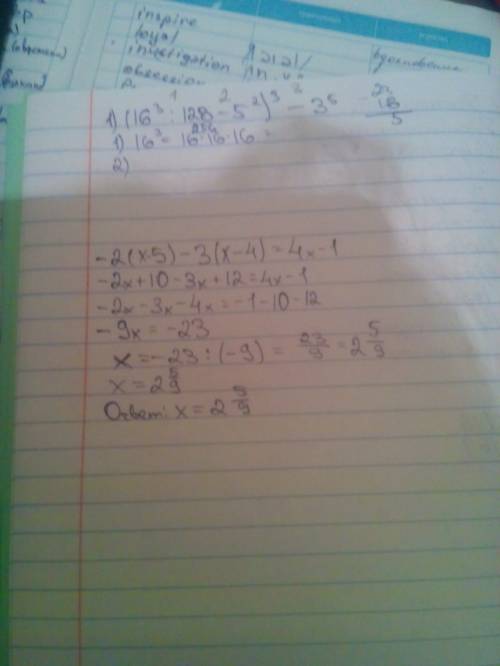 inspire
loyal
investigation
obsession
вдохновение
1 2 3
1) (16³ : 128 - 5²)³ - 3⁵
- 23
18
5
256
1) 16³ = 16·16·16 =
2)
-2(x-5) - 3(x-4) = 4x-1
-2x+10-3x+12=4x-1
-2x-3x-4x=-1-10-12
-9x = -23
x = -23 : (-9) = 23/9 = 2 5/9
x = 2 5/9
Ответ: x = 2 5/9